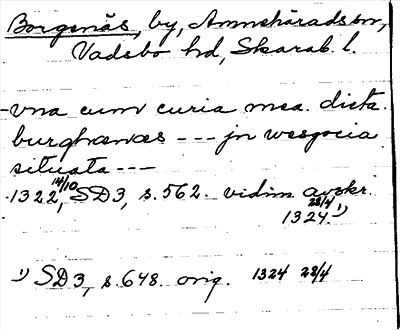 Borgenäs, by, Amnehäradssn,
Vadsbo hd, Skarab. l.
-vna cum curia mea dicta
burghanæs --- jn wesgocia
situata ---
1322 14/10, SD3, s.562. vidim. avskr.
28/4 1324.¹⁾
¹⁾ SD3, s.648. orig. 1324 28/4